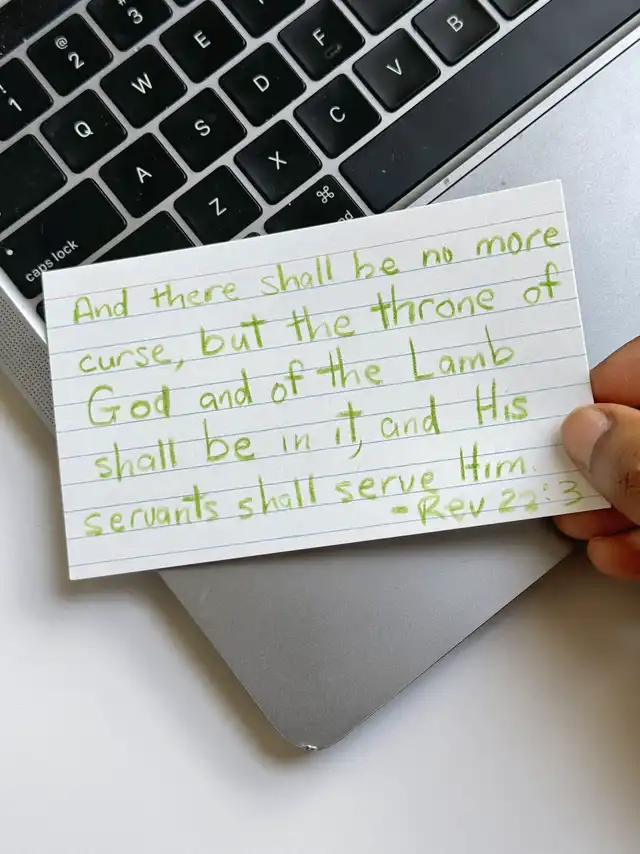 #
3
@
2
!
1
E
F
B
W
D
V
Q
S
C
A
X
Z
⌘
caps lock
And there shall be no more
curse, but the throne of
God and of the Lamb
shall be in it, and His
servants shall serve Him.
- Rev 22:3